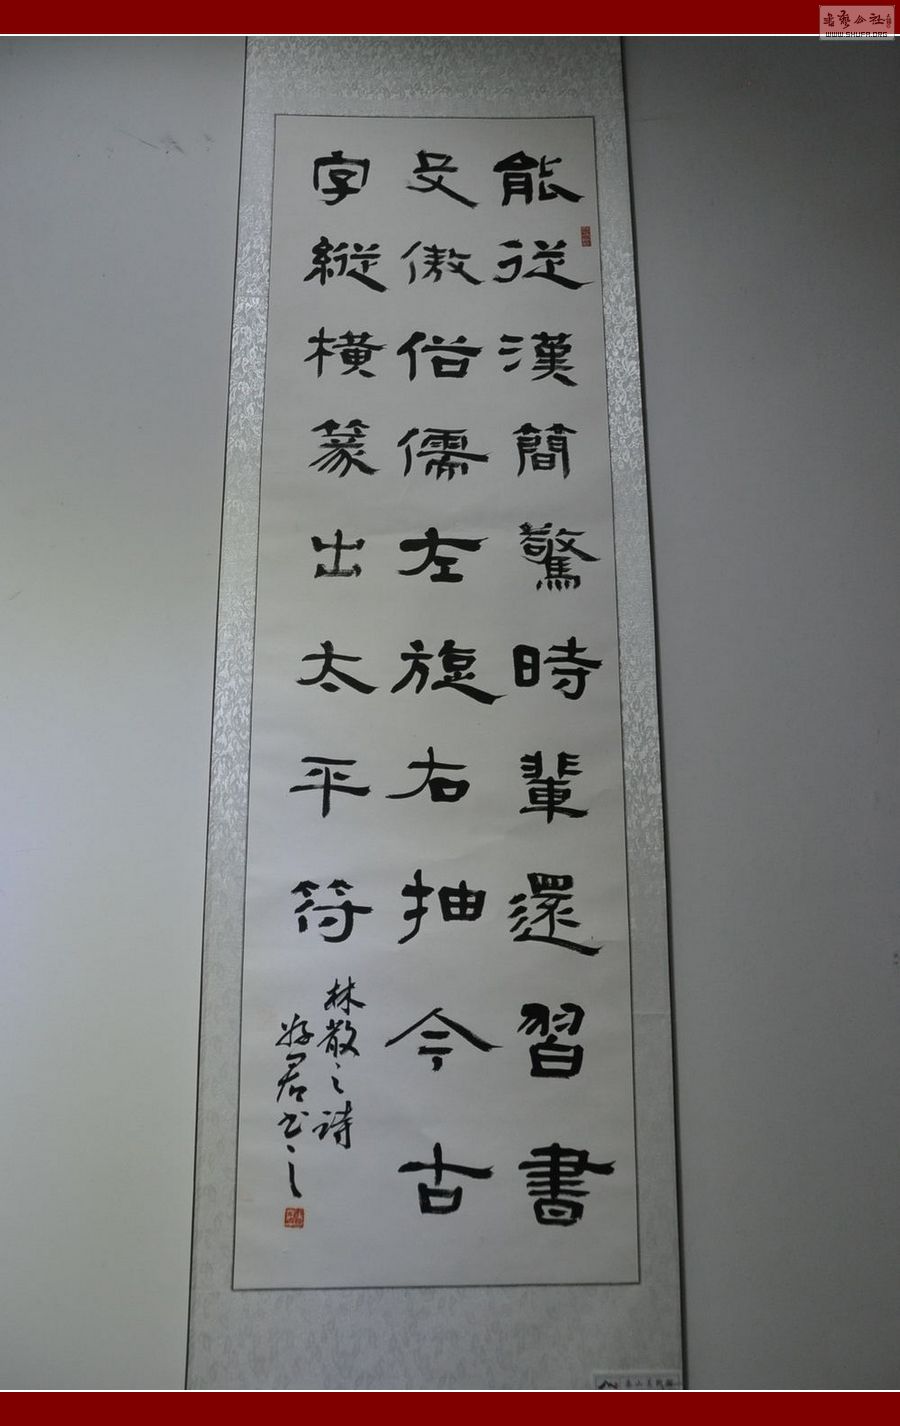 能從漢簡驚時輩還習書
殳傲俗儒左旋右抽今古
字縱橫篆出太平符
林散之詩
君书之
WWW.SHUFA.ORG